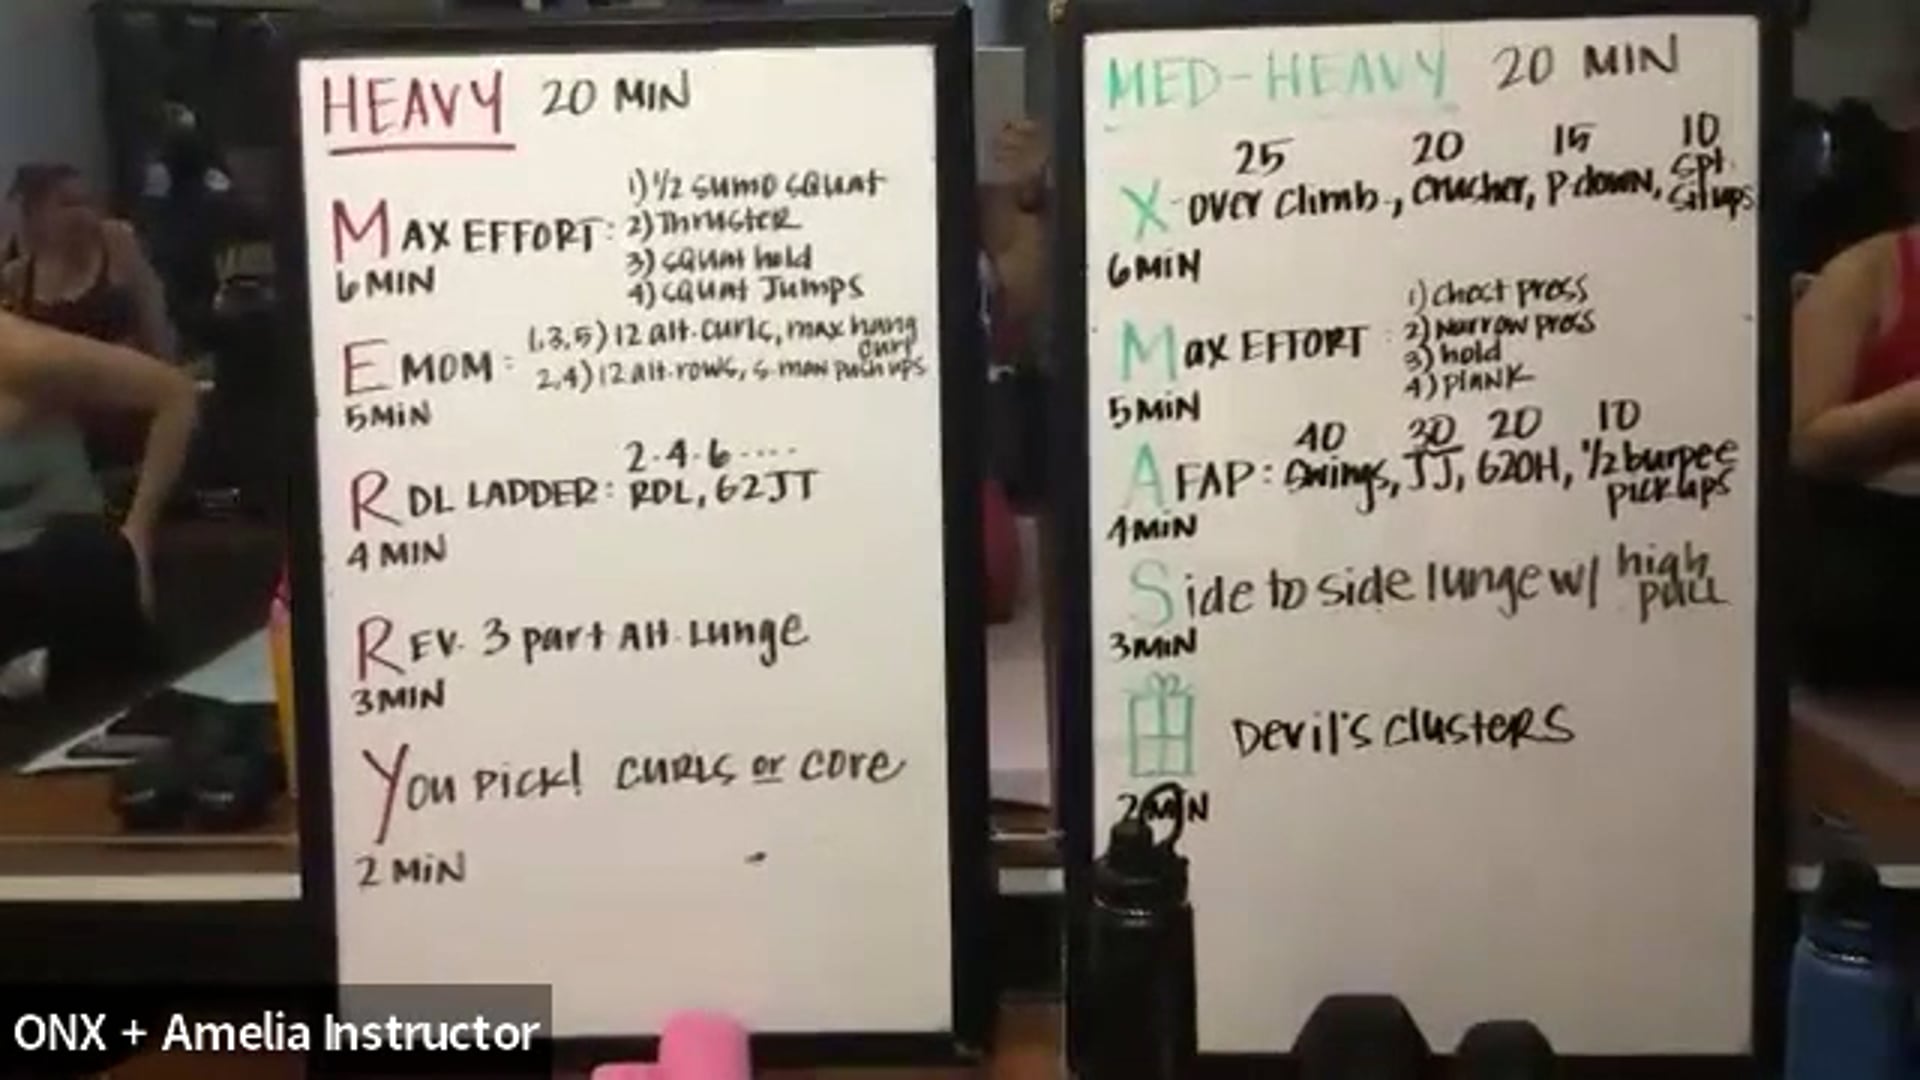 HEAVY 20 MIN
MAX EFFORT: 1) 1/2 sumo squat
2) Thruster
3) squat hold
4) squat Jumps
6 MIN
EMOM: 1,3,5) 12 alt. curls, max hang curl
2,4) 12 alt. rows, s-man push ups
5 MIN
2·4·6····
RDL LADDER: RDL, G2JT
4 MIN
REV. 3 part Alt. Lunge
3 MIN
YOU PICK! CURLS or core
2 MIN
MED-HEAVY 20 MIN
25 20 15 10
X-over climb., crusher, P.down, spt. situps
6 MIN
Max EFFORT: 1) chest press
2) Narrow press
3) hold
4) plank
5 MIN
40 30 20 10
AFAP: swings, JJ, G2OH, 1/2 burpee pick ups
4 MIN
Side to side lunge w/ high pull
3 MIN
Devil's clusters
2 MIN
ONX + Amelia Instructor